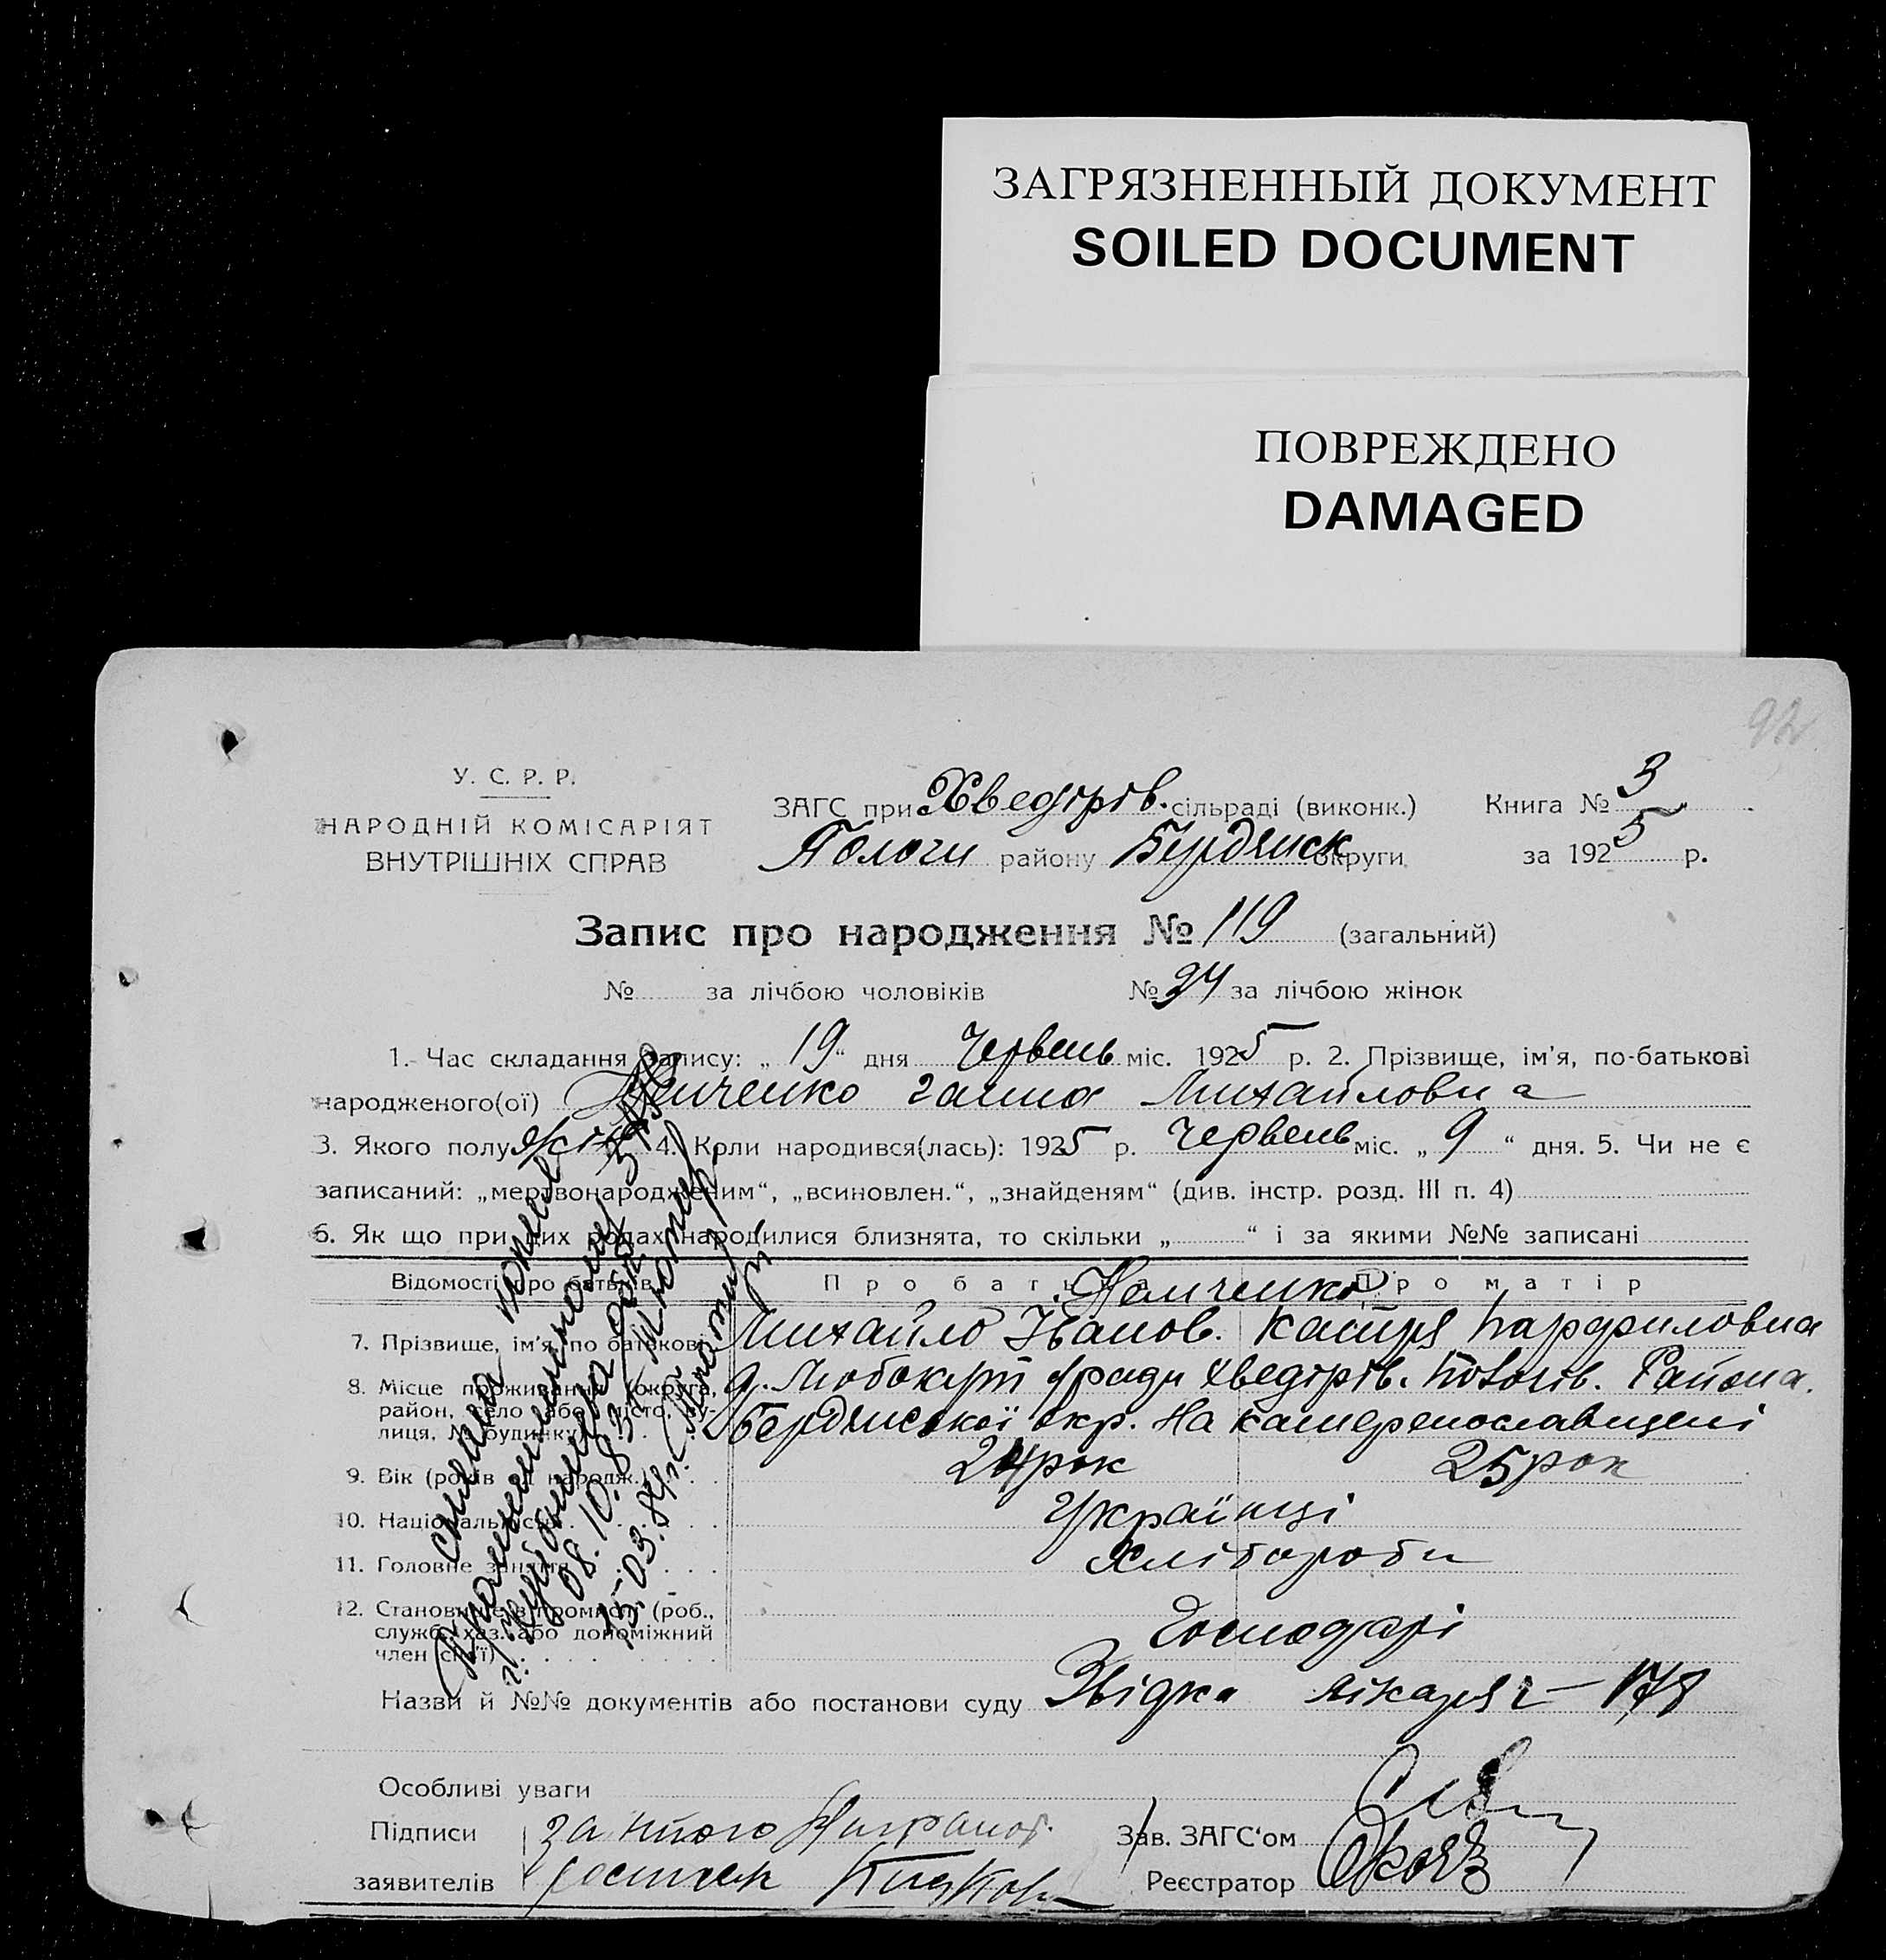 ЗАГРЯЗНЕННЫЙ ДОКУМЕНТ
SOILED DOCUMENT
ПОВРЕЖДЕНО
DAMAGED
92
У. С. Р. Р.
НАРОДНІЙ КОМІСАРІЯТ
ВНУТРІШНІХ СПРАВ
ЗАГС при Хведорів. сільраді (виконк.) Книга № 3
Пологи району Бердянск округи за 1925 р.
Запис про народження № 119 (загальний)
№ за лічбою чоловіків № 34 за лічбою жінок
1. Час складання запису: „19“ дня Червень міс. 1925 р. 2. Прізвище, ім'я, по-батькові
народженого(ої) Немченко Галина Михайловна
3. Якого полу жін. 4. Коли народився(лась): 1925 р. Червень міс. „9“ дня. 5. Чи не є
записаний: „мертвонародженим“, „всиновлен.“, „знайденям“ (див. інстр. розд. III п. 4)
6. Як що при цих родах народилися близнята, то скільки „ “ і за якими №№ записані
Відомості про батьків Про батька Про матір
Немченко
7. Прізвище, ім'я, по батькові Михайло Іванов. Катря Парфиловна
8. Місце проживання (округа, район, село або місто, вулиця, № будинку)
сради Хведорів. Пологів. Района.
Бердянської окр. на Катеренославщені
9. Вік (років від народж.) 24 рок 25 рок
10. Національність Українці
11. Головне заняття Хлібороби
12. Становище в промислі (роб., служб., хаз. або допоміжний член сім'ї) Господарі
Назви й №№ документів або постанови суду Звідка лікаря 178
Особливі уваги
Підписи за
заявителів
Зав. ЗАГС'ом
Реєстратор
снята копия
08.10.83г.
15.03.84г.